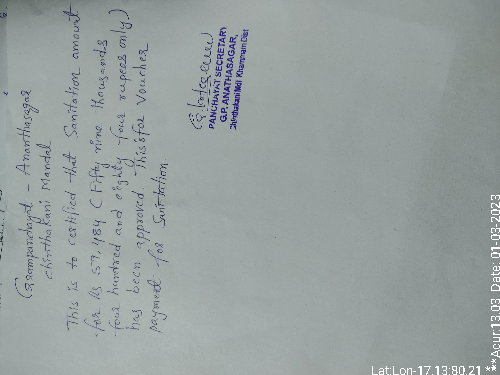 Grampanchayat - Ananthasagar
chinthakani Mandal
This is to certified that Sanitation amount
for Rs 59,484 (Fifty nine thousands
four hundred and eighty four rupees only)
has been approved. This is for voucher
payment for Sanitation
PANCHAYAT SECRETARY
G.P. ANATHASAGAR,
Chinthakani Mdl. Khammam Dist
Lat:Lon-17.13:80.21 ***Acur:13.03 Date: 01-03-2023